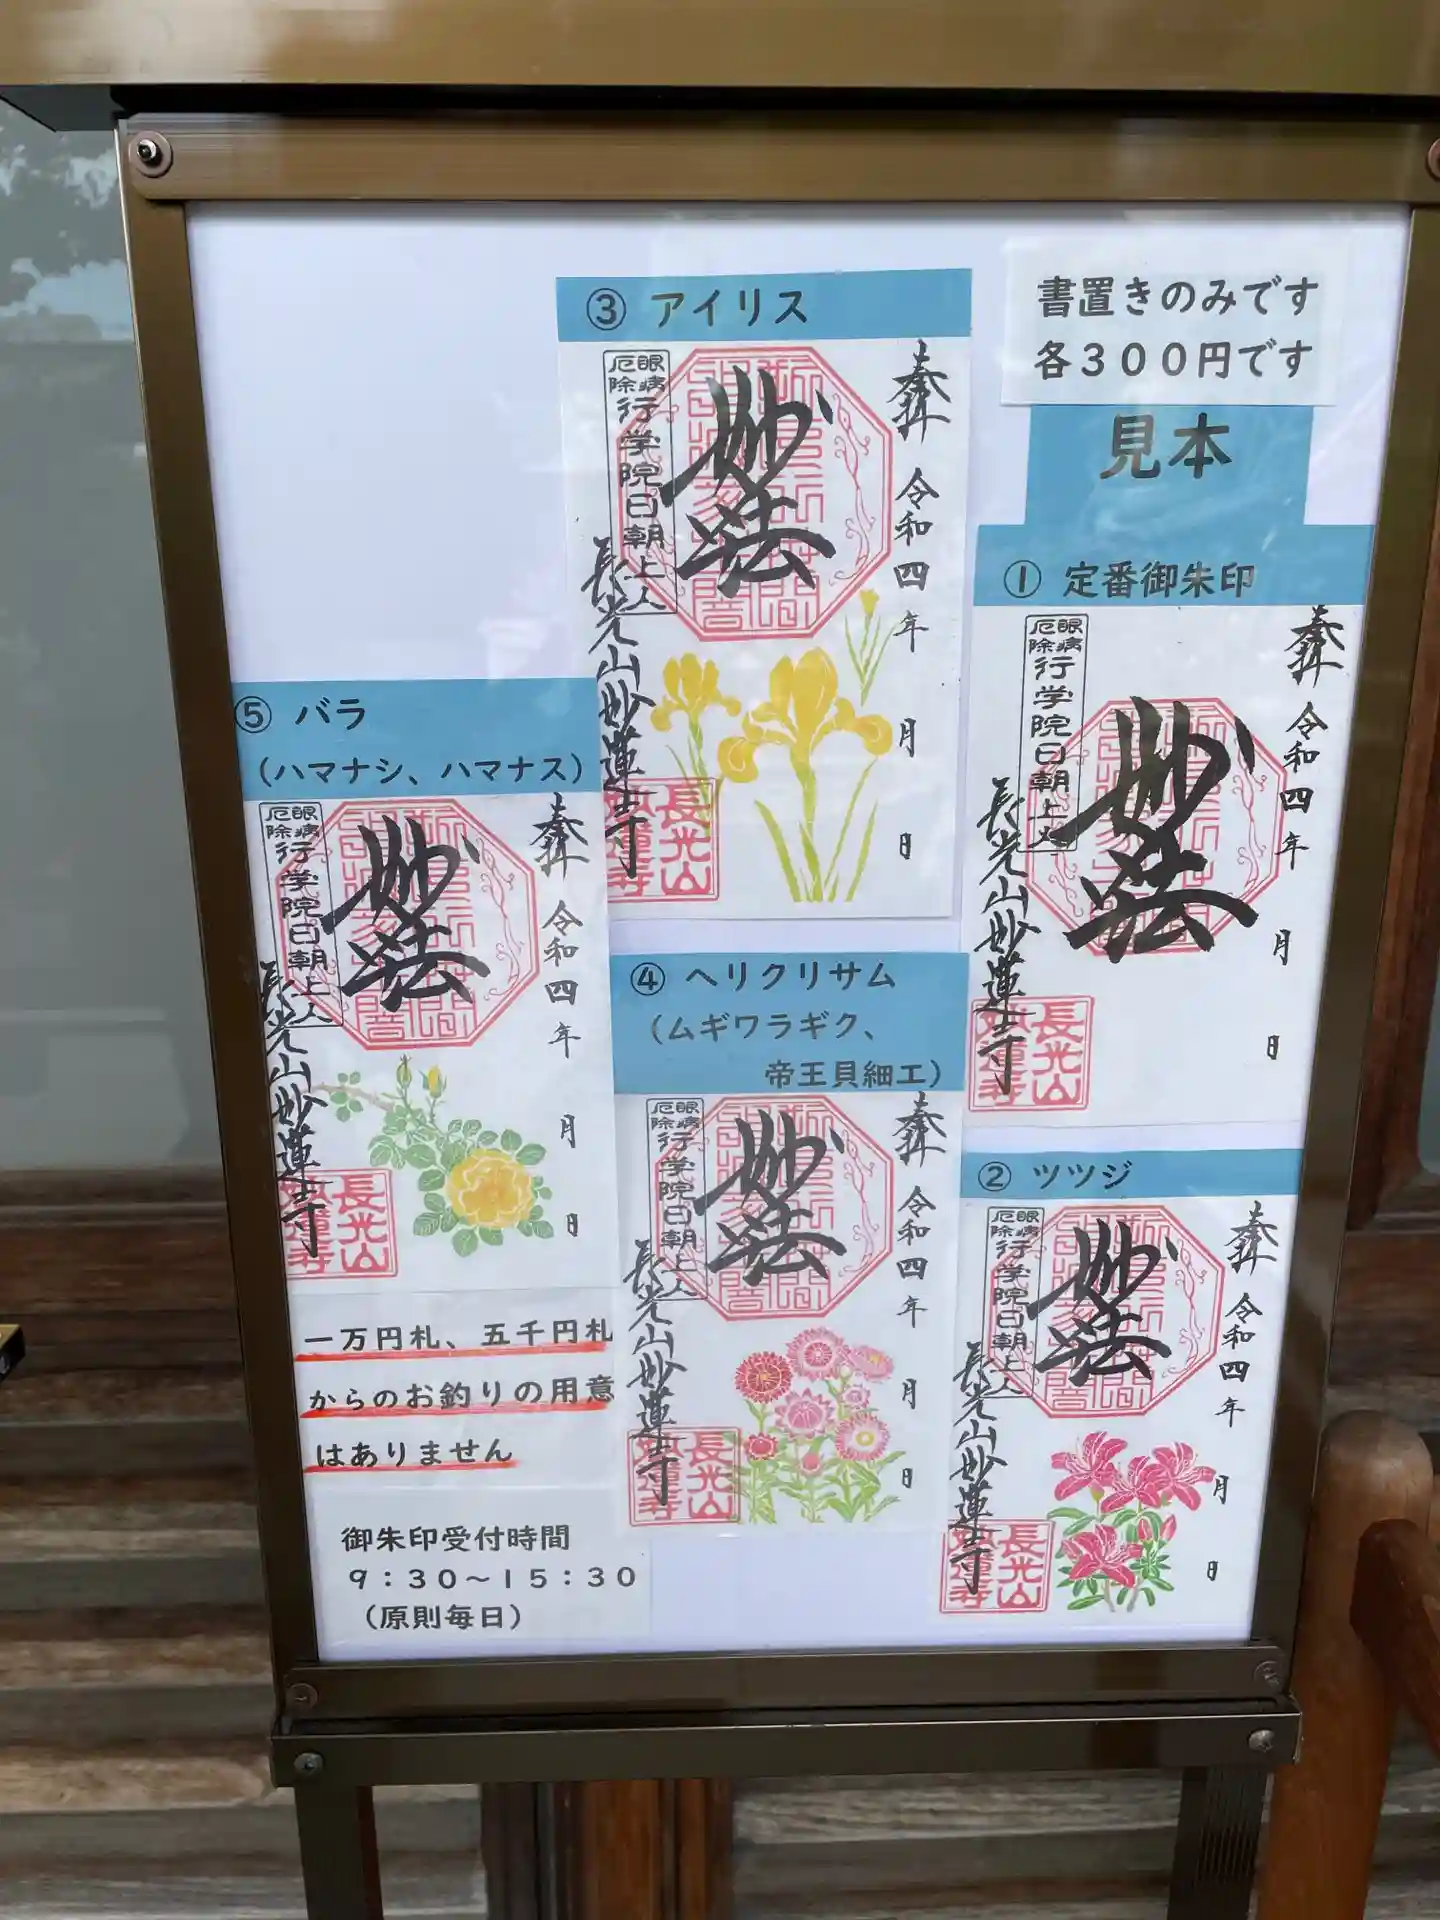 書置きのみです
各300円です
見本
① 定番御朱印
奉拝
令和四年 月 日
妙法
眼病
厄除
行学院日朝上人
長光山妙蓮寺
長光山
妙蓮寺
② ツツジ
奉拝
令和四年 月 日
妙法
眼病
厄除
行学院日朝上人
長光山妙蓮寺
長光山
妙蓮寺
③ アイリス
奉拝
令和四年 月 日
妙法
眼病
厄除
行学院日朝上人
長光山妙蓮寺
長光山
妙蓮寺
④ ヘリクリサム
(ムギワラギク、
帝王貝細工)
奉拝
令和四年 月 日
妙法
眼病
厄除
行学院日朝上人
長光山妙蓮寺
長光山
妙蓮寺
⑤ バラ
(ハマナシ、ハマナス)
奉拝
令和四年 月 日
妙法
眼病
厄除
行学院日朝上人
長光山妙蓮寺
長光山
妙蓮寺
一万円札、五千円札
からのお釣りの用意
はありません
御朱印受付時間
9:30〜15:30
(原則毎日)